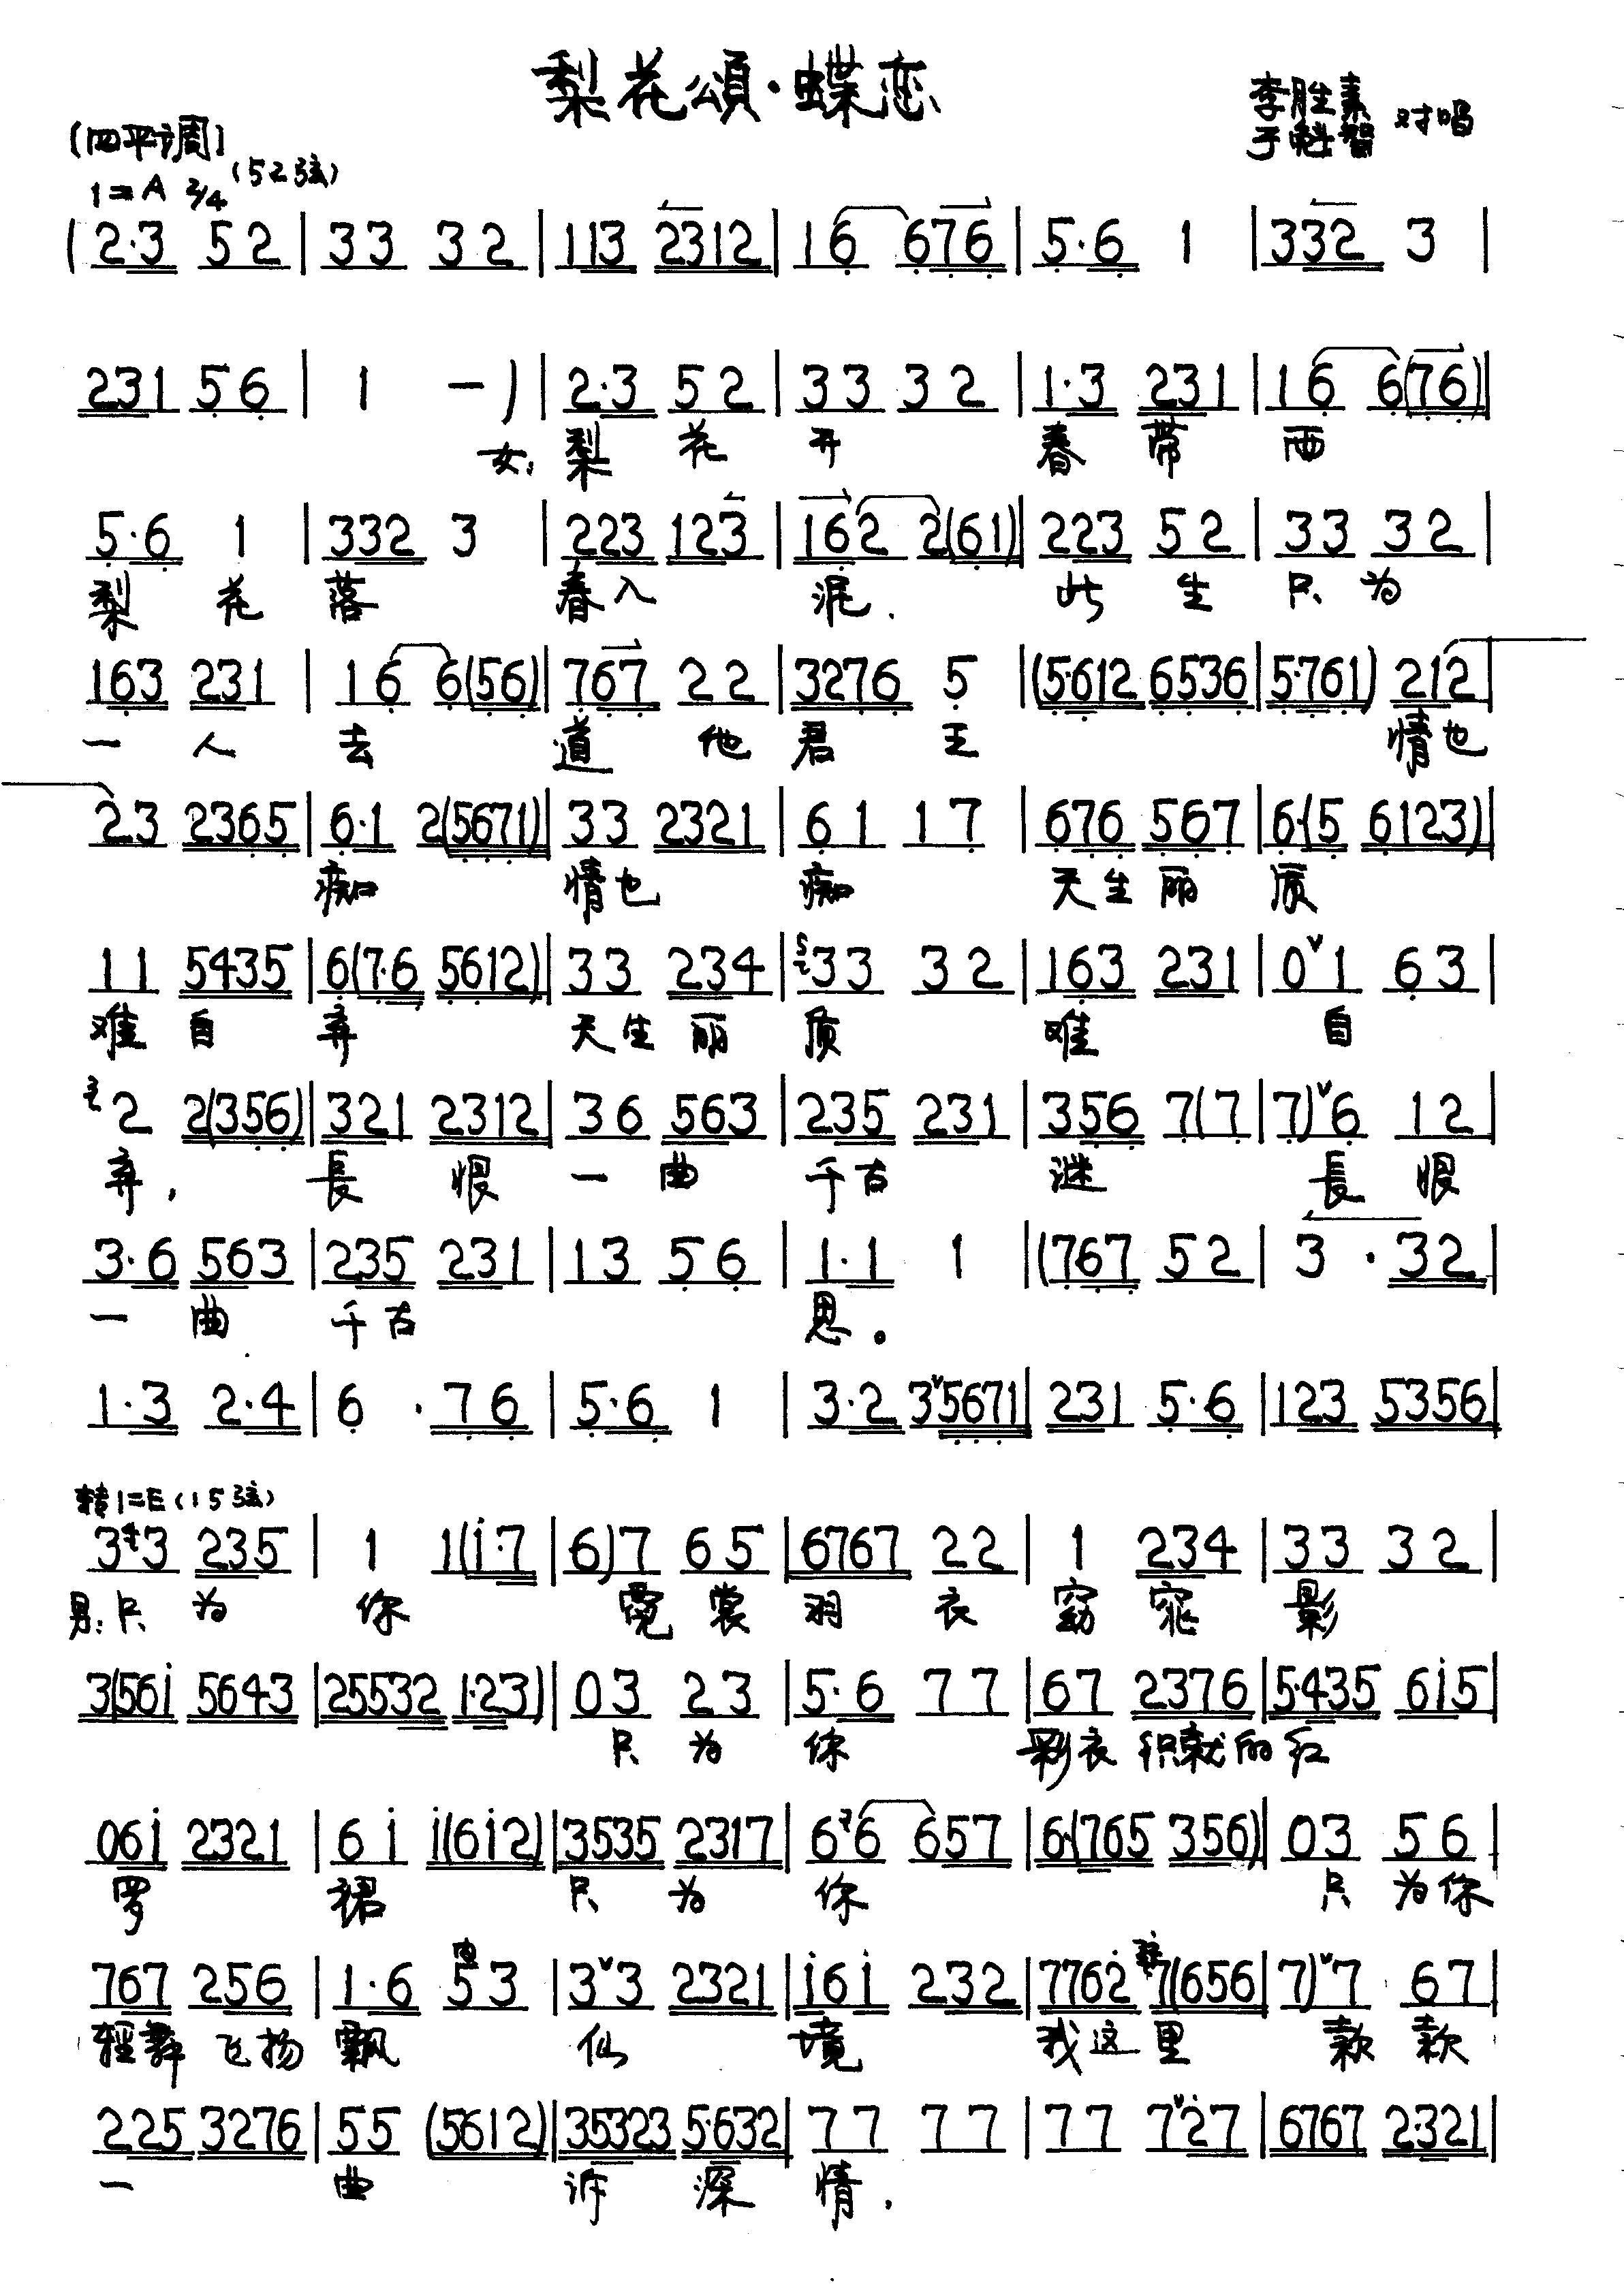 梨花頌·蝶恋
李胜素
于魁智 对唱
(四平调)
1=A 2/4 (52弦)
( 2·3 5 2 | 33 3 2 | 113 2312 | 16 676 | 5·6 1 | 332 3 |
231 56 | 1 — ) | 2·3 5 2 | 33 32 | 1·3 231 | 16 6(76) |
女: 梨 花 开 春 带 雨
5·6 1 | 332 3 | 223 123 | 162 2(61) | 223 52 | 33 32 |
梨 花 落 春 入 泥. 此 生 只 为
163 231 | 16 6(56) | 767 22 | 3276 5 | (5·612 6536 | 5·761) 212 |
一 人 去 道 他 君 王 情 也
23 2365 | 6·1 2(5671) | 33 2321 | 61 17 | 676 567 | 6·(5 6123) |
痴 情也 痴 天生丽 质
11 5435 | 6(7·6 5612) | 33 234 | 5 33 32 | 163 231 | 0 1 63 |
难 自 弃 天生 丽 质 难 自
3 2 2(356) | 321 2312 | 36 563 | 235 231 | 356 7(7 | 7) 6 12 |
弃, 長 恨 一 曲 千古 谜 長 恨
3·6 563 | 235 231 | 13 56 | 1·1 1 | (767 52 | 3 · 32 |
一 曲 千古 思。
1·3 2·4 | 6 · 76 | 5·6 1 | 3·2 35671 | 231 5·6 | 123 5356 |
转1=E(15弦)
3 3 235 | 1 1(i·7 | 6)7 65 | 6767 22 | 1 234 | 33 32 |
男: 只 为 你 霓 裳 羽 衣 窈 窕 影
3(56i 5643 | 25532 1·23) | 03 23 | 5·6 77 | 67 2376 | 5·435 6i5 |
只 为 你 彩衣 织就的 红
06i 2321 | 6i i(6i2) | 3535 2317 | 6 7 6 657 | 6·(765 356) | 03 56 |
罗 裙 只 为 你 只 为你
767 256 | 1·6 53 | 3 3 2321 | i6i 232 | 7762 7(656 | 7) 7 67 |
轻舞 飞扬 飘 仙 境 我这里 款 款
225 3276 | 55 (5612) | 35323 5·632 | 77 77 | 77 727 | 6767 2·321 |
一 曲 诉 深 情.